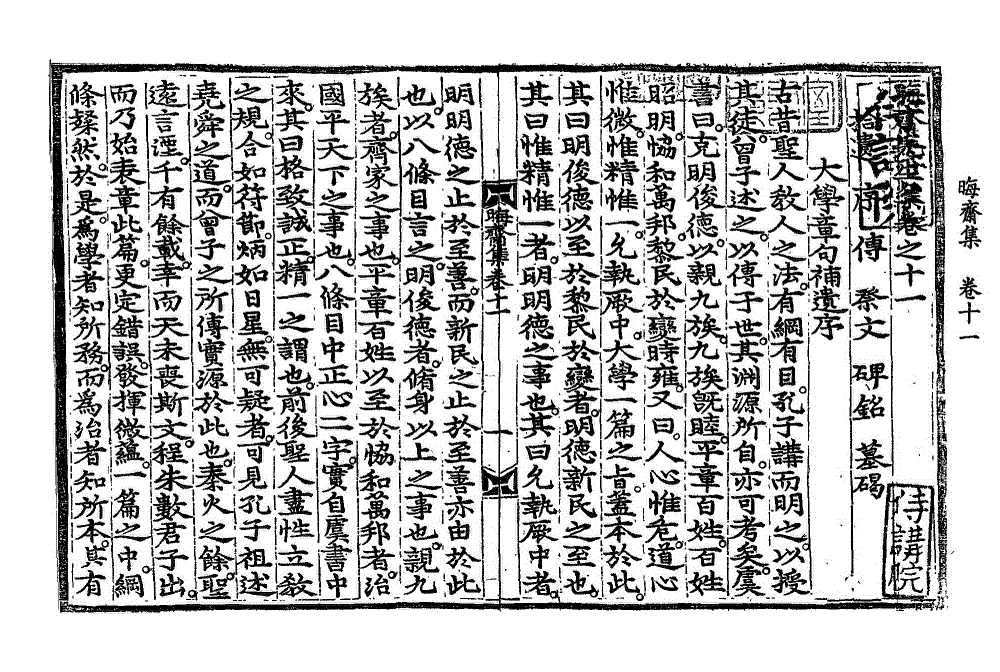 晦齋集　卷十一
晦齋先生集卷之十一
拾遺　序　傳　祭文　碑銘　墓碣
侍講院
大學章句補遺序
古昔聖人教人之法。有綱有目。孔子講而明之。以授
其徒。曾子述之。以傳于世。其淵源所自。亦可考矣。虞
書曰。克明俊德。以親九族。九族旣睦。平章百姓。百姓
昭明。恊和萬邦。黎民於變時雍。又曰。人心惟危。道心
惟微。惟精惟一。允執厥中。大學一篇之旨。蓋本於此。
其曰明俊德以至於黎民於變者。明德新民之至也。
其曰惟精惟一者。明明德之事也。其曰允執厥中者。
晦齋集卷十一
一
明明德之止於至善。而新民之止於至善。亦由於此
也。以八條目言之。明俊德者。脩身以上之事也。親九
族者。齊家之事也。平章百姓以至於恊和萬邦者。治
國平天下之事也。八條目中正心二字。實自虞書中
來。其曰格致誠正。精一之謂也。前後聖人盡性立教
之規。合如符節。炳如日星。無可疑者。可見孔子祖述
堯舜之道。而曾子之所傳實源於此也。秦火之餘。聖
遠言湮。千有餘載。幸而天未喪斯文。程朱數君子出。
而乃始表章此篇。更定錯誤。發揮微蘊。一篇之中。綱
條粲然。於是。爲學者知所務。而爲治者知所本。其有